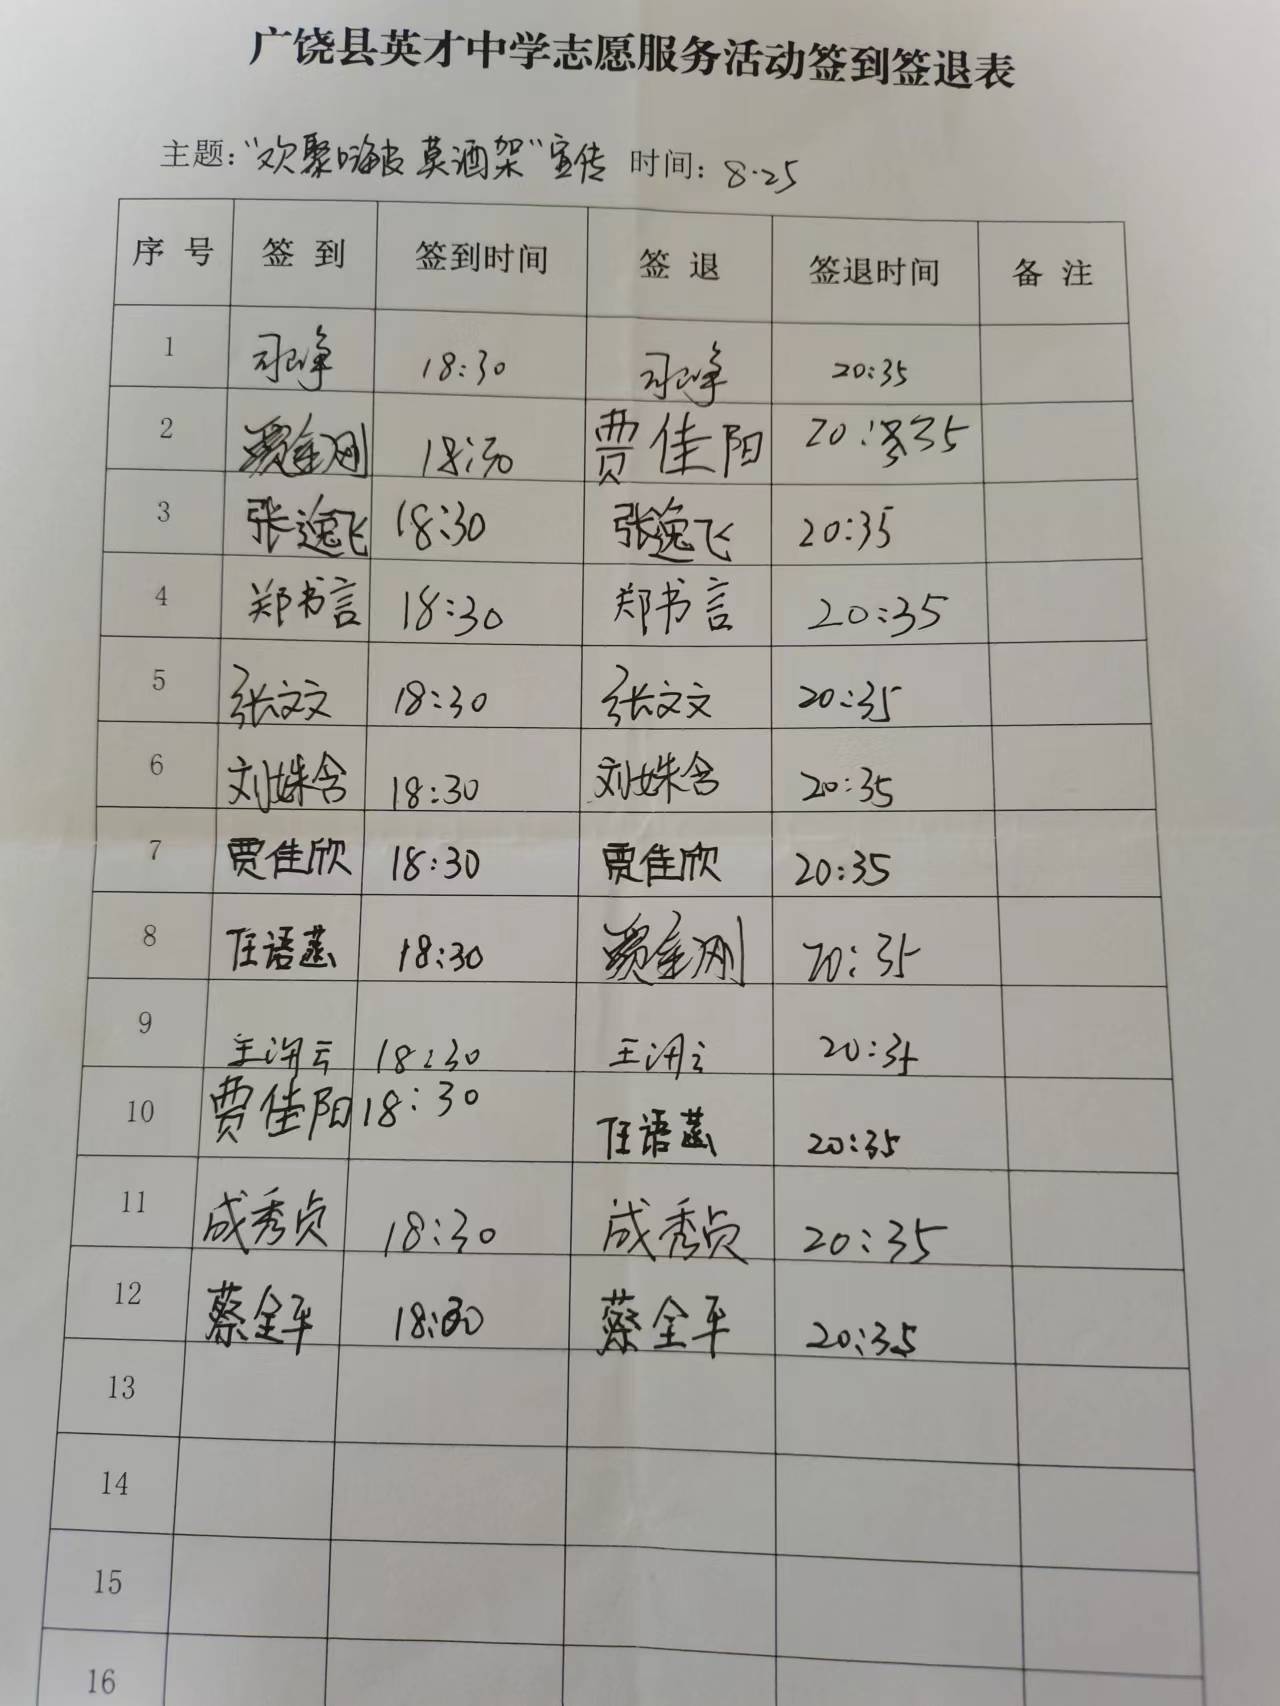 广饶县英才中学志愿服务活动签到签退表
主题：“欢聚嗨皮 莫酒架”宣传 时间：8·25
序号 签到 签到时间 签退 签退时间 备注
1 18:30 20:35
2 贾金刚 18:30 贾佳阳 20:35
3 张逸飞 18:30 张逸飞 20:35
4 郑书言 18:30 郑书言 20:35
5 张文文 18:30 张文文 20:35
6 刘姝含 18:30 刘姝含 20:35
7 贾佳欣 18:30 贾佳欣 20:35
8 任语菡 18:30 贾金刚 20:35
9 18:30 20:35
10 贾佳阳 18:30 任语菡 20:35
11 成秀贞 18:30 成秀贞 20:35
12 蔡全平 18:30 蔡全平 20:35
13
14
15
16